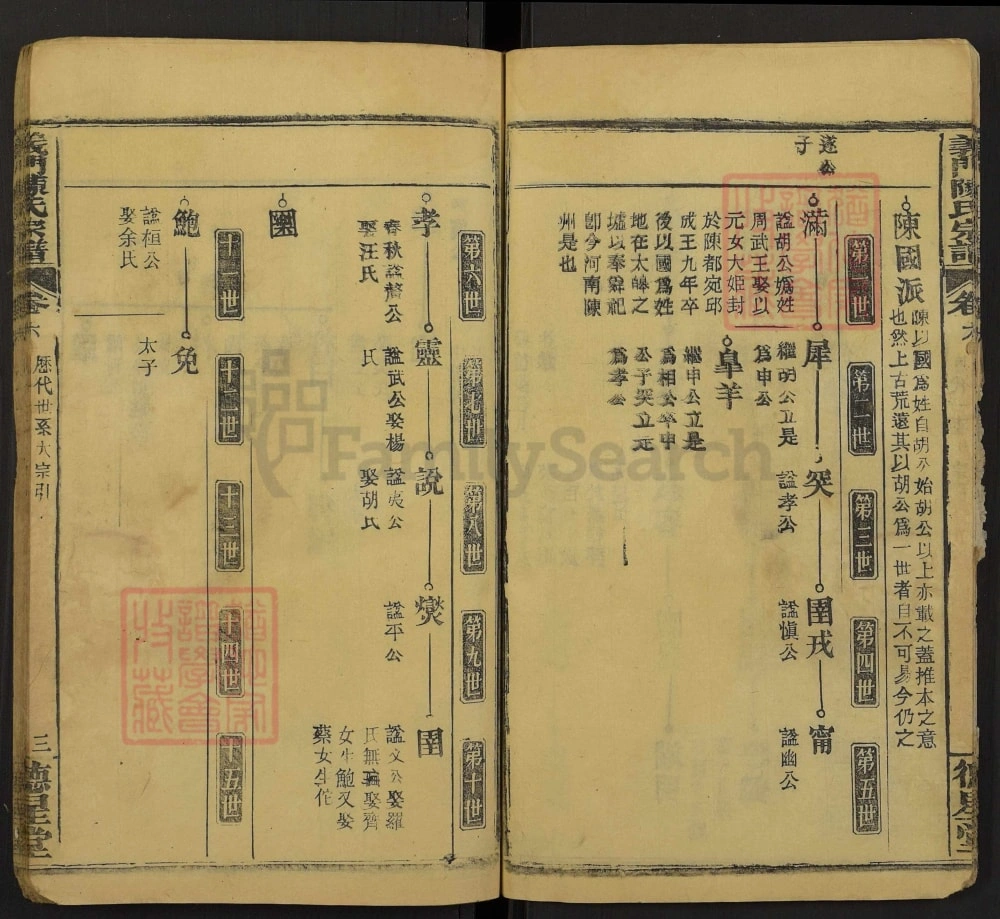 義門陳氏宗譜
卷六
德星堂
陳國派
陳以國爲姓自胡公始胡公以上亦載之蓋推本之意
也然上古荒遠其以胡公爲一世者自不可易今仍之
第一世
第二世
第三世
第四世
第五世
遂公
子
滿
諡胡公嬀姓
周武王娶以
元女大姬封
於陳都宛邱
成王九年卒
後以國爲姓
地在太皞之
墟以奉舜祀
卽今河南陳
州是也
犀
繼胡公立是
爲申公
皐羊
繼申公立是
爲相公卒申
公子突立是
爲孝公
突
諡孝公
圉戎
諡愼公
甯
諡幽公
第六世
第七世
第八世
第九世
第十世
孝
春秋諡釐公
娶汪氏
靈
諡武公娶楊
氏
說
諡夷公
娶胡氏
燮
諡平公
圉
諡文公娶羅
氏無嗣娶齊
女生鮑又娶
蔡女生佗
圉
十一世
十二世
十三世
十四世
十五世
鮑
諡桓公
娶余氏
免
太子
義門陳氏宗譜
卷六
歷代世系大宗引
三
德星堂
FamilySearch